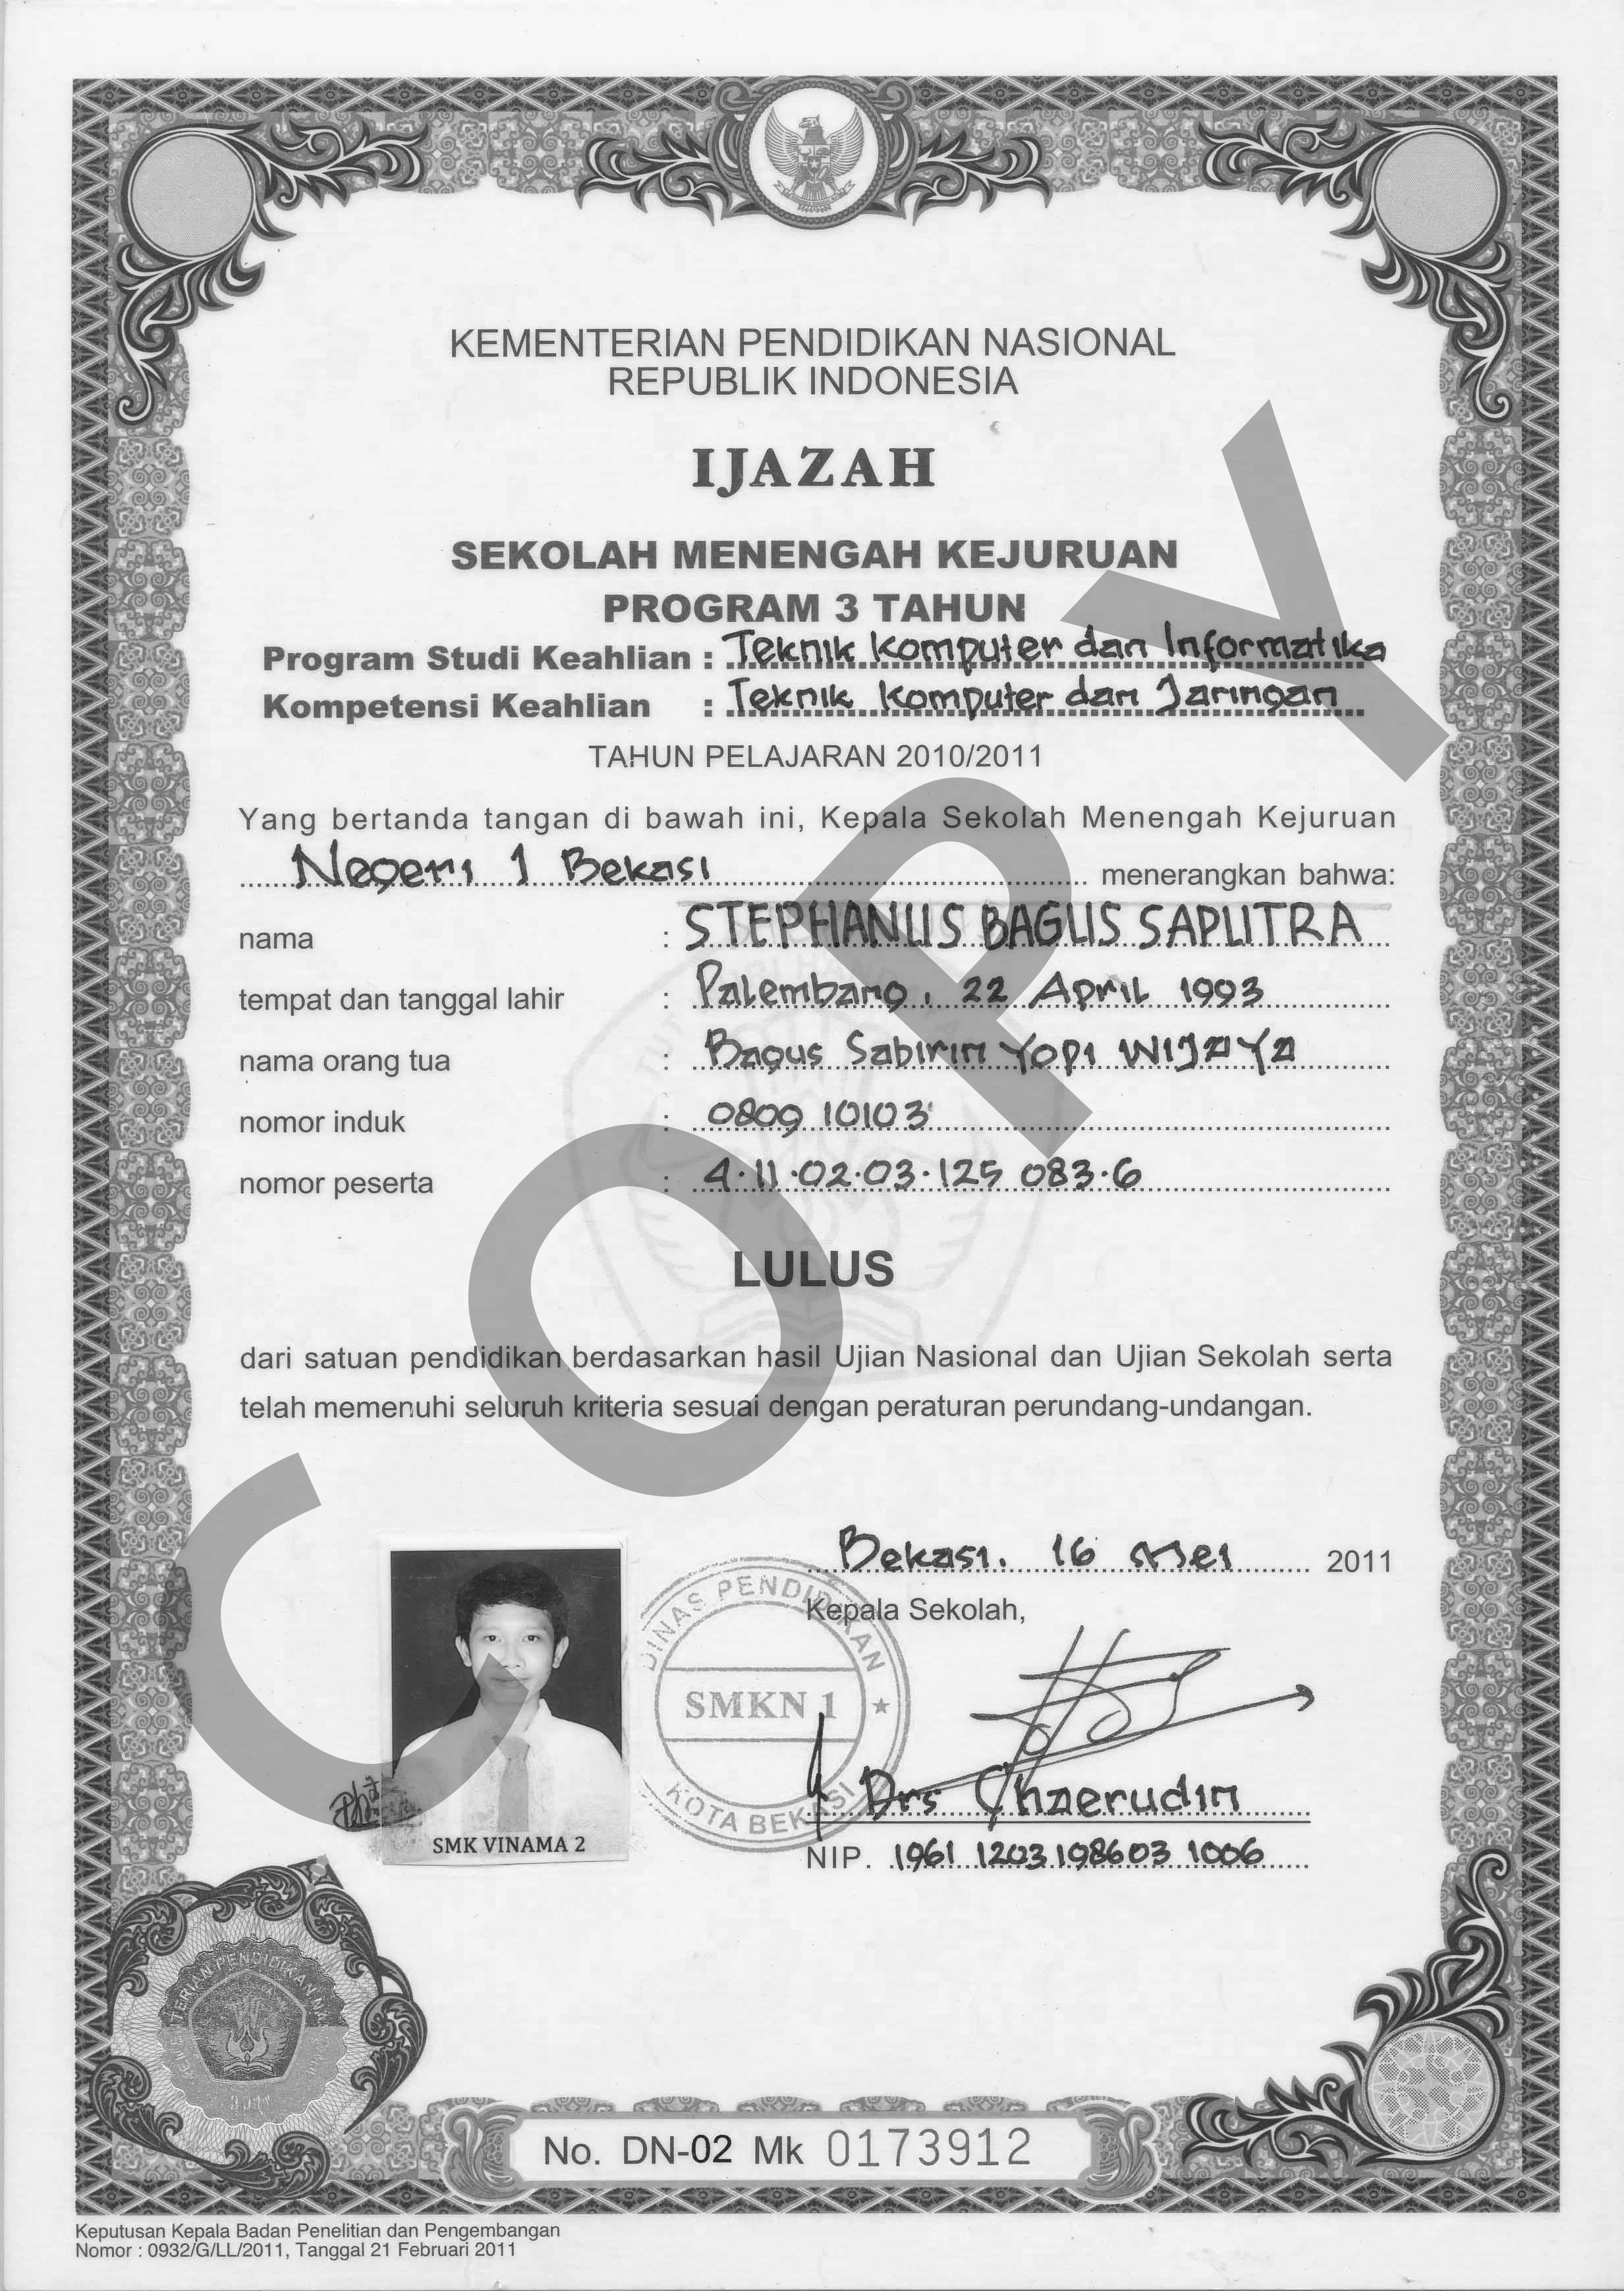 KEMENTERIAN PENDIDIKAN NASIONAL
REPUBLIK INDONESIA
IJAZAH
SEKOLAH MENENGAH KEJURUAN
PROGRAM 3 TAHUN
Program Studi Keahlian : Teknik Komputer dan Informatika
Kompetensi Keahlian : Teknik Komputer dan Jaringan
TAHUN PELAJARAN 2010/2011
Yang bertanda tangan di bawah ini, Kepala Sekolah Menengah Kejuruan
Negeri 1 Bekasi menerangkan bahwa:
nama : STEPHANUS BAGUS SAPUTRA
tempat dan tanggal lahir : Palembang, 22 April 1993
nama orang tua : Bagus Sabirin Yopi WIJAYA
nomor induk : 0809 10103
nomor peserta : 4.11.02.03.125 083.6
LULUS
dari satuan pendidikan berdasarkan hasil Ujian Nasional dan Ujian Sekolah serta
telah memenuhi seluruh kriteria sesuai dengan peraturan perundang-undangan.
Bekasi, 16 Mei 2011
Kepala Sekolah,
DINAS PENDIDIKAN
SMKN 1
KOTA BEKASI
Drs Chaerudin
NIP. 1961 1203 198603 1006
SMK VINAMA 2
No. DN-02 Mk 0173912
Keputusan Kepala Badan Penelitian dan Pengembangan
Nomor : 0932/G/LL/2011, Tanggal 21 Februari 2011
COPY